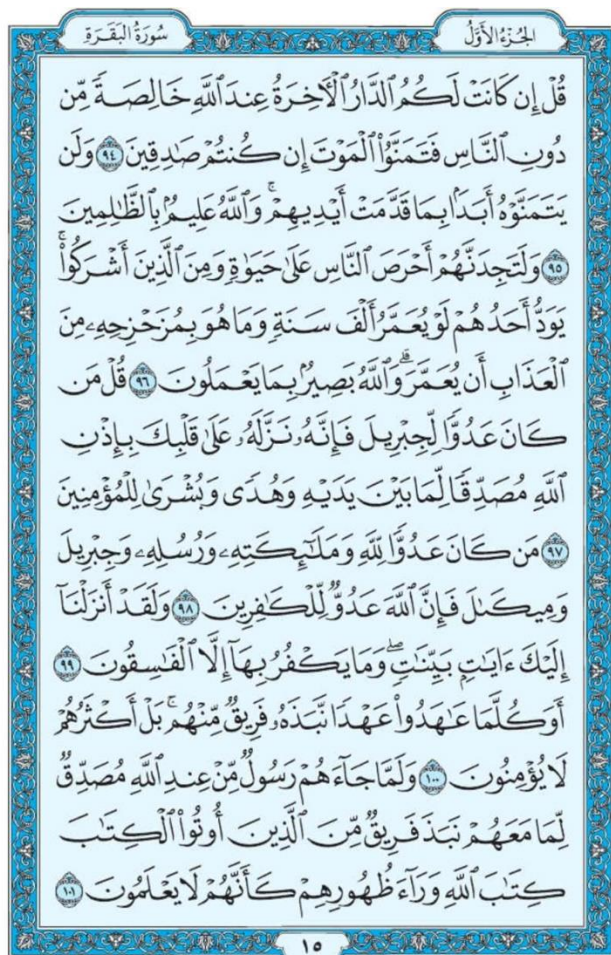 الجُزْءُ الأَوَّلُ
سُورَةُ البَقَرَةِ
قُلْ إِن كَانَتْ لَكُمُ ٱلدَّارُ ٱلْأٓخِرَةُ عِندَ ٱللَّهِ خَالِصَةً مِّن
دُونِ ٱلنَّاسِ فَتَمَنَّوُا۟ ٱلْمَوْتَ إِن كُنتُمْ صَٰدِقِينَ ٩٤ وَلَن
يَتَمَنَّوْهُ أَبَدًۢا بِمَا قَدَّمَتْ أَيْدِيهِمْ ۚ وَٱللَّهُ عَلِيمٌۢ بِٱلظَّٰلِمِينَ
٩٥ وَلَتَجِدَنَّهُمْ أَحْرَصَ ٱلنَّاسِ عَلَىٰ حَيَوٰةٍ وَمِنَ ٱلَّذِينَ أَشْرَكُوا۟ ۚ
يَوَدُّ أَحَدُهُمْ لَوْ يُعَمَّرُ أَلْفَ سَنَةٍ وَمَا هُوَ بِمُزَحْزِحِهِۦ مِنَ
ٱلْعَذَابِ أَن يُعَمَّرَ ۗ وَٱللَّهُ بَصِيرٌۢ بِمَا يَعْمَلُونَ ٩٦ قُلْ مَن
كَانَ عَدُوًّا لِّجِبْرِيلَ فَإِنَّهُۥ نَزَّلَهُۥ عَلَىٰ قَلْبِكَ بِإِذْنِ
ٱللَّهِ مُصَدِّقًا لِّمَا بَيْنَ يَدَيْهِ وَهُدًى وَبُشْرَىٰ لِلْمُؤْمِنِينَ
٩٧ مَن كَانَ عَدُوًّا لِّلَّهِ وَمَلَٰٓئِكَتِهِۦ وَرُسُلِهِۦ وَجِبْرِيلَ
وَمِيكَىٰلَ فَإِنَّ ٱللَّهَ عَدُوٌّ لِّلْكَٰفِرِينَ ٩٨ وَلَقَدْ أَنزَلْنَآ
إِلَيْكَ ءَايَٰتٍۭ بَيِّنَٰتٍ ۖ وَمَا يَكْفُرُ بِهَآ إِلَّا ٱلْفَٰسِقُونَ ٩٩
أَوَكُلَّمَا عَٰهَدُوا۟ عَهْدًا نَّبَذَهُۥ فَرِيقٌ مِّنْهُم ۚ بَلْ أَكْثَرُهُمْ
لَا يُؤْمِنُونَ ١٠٠ وَلَمَّا جَآءَهُمْ رَسُولٌ مِّنْ عِندِ ٱللَّهِ مُصَدِّقٌ
لِّمَا مَعَهُمْ نَبَذَ فَرِيقٌ مِّنَ ٱلَّذِينَ أُوتُوا۟ ٱلْكِتَٰبَ
كِتَٰبَ ٱللَّهِ وَرَآءَ ظُهُورِهِمْ كَأَنَّهُمْ لَا يَعْلَمُونَ ١٠١
١٥